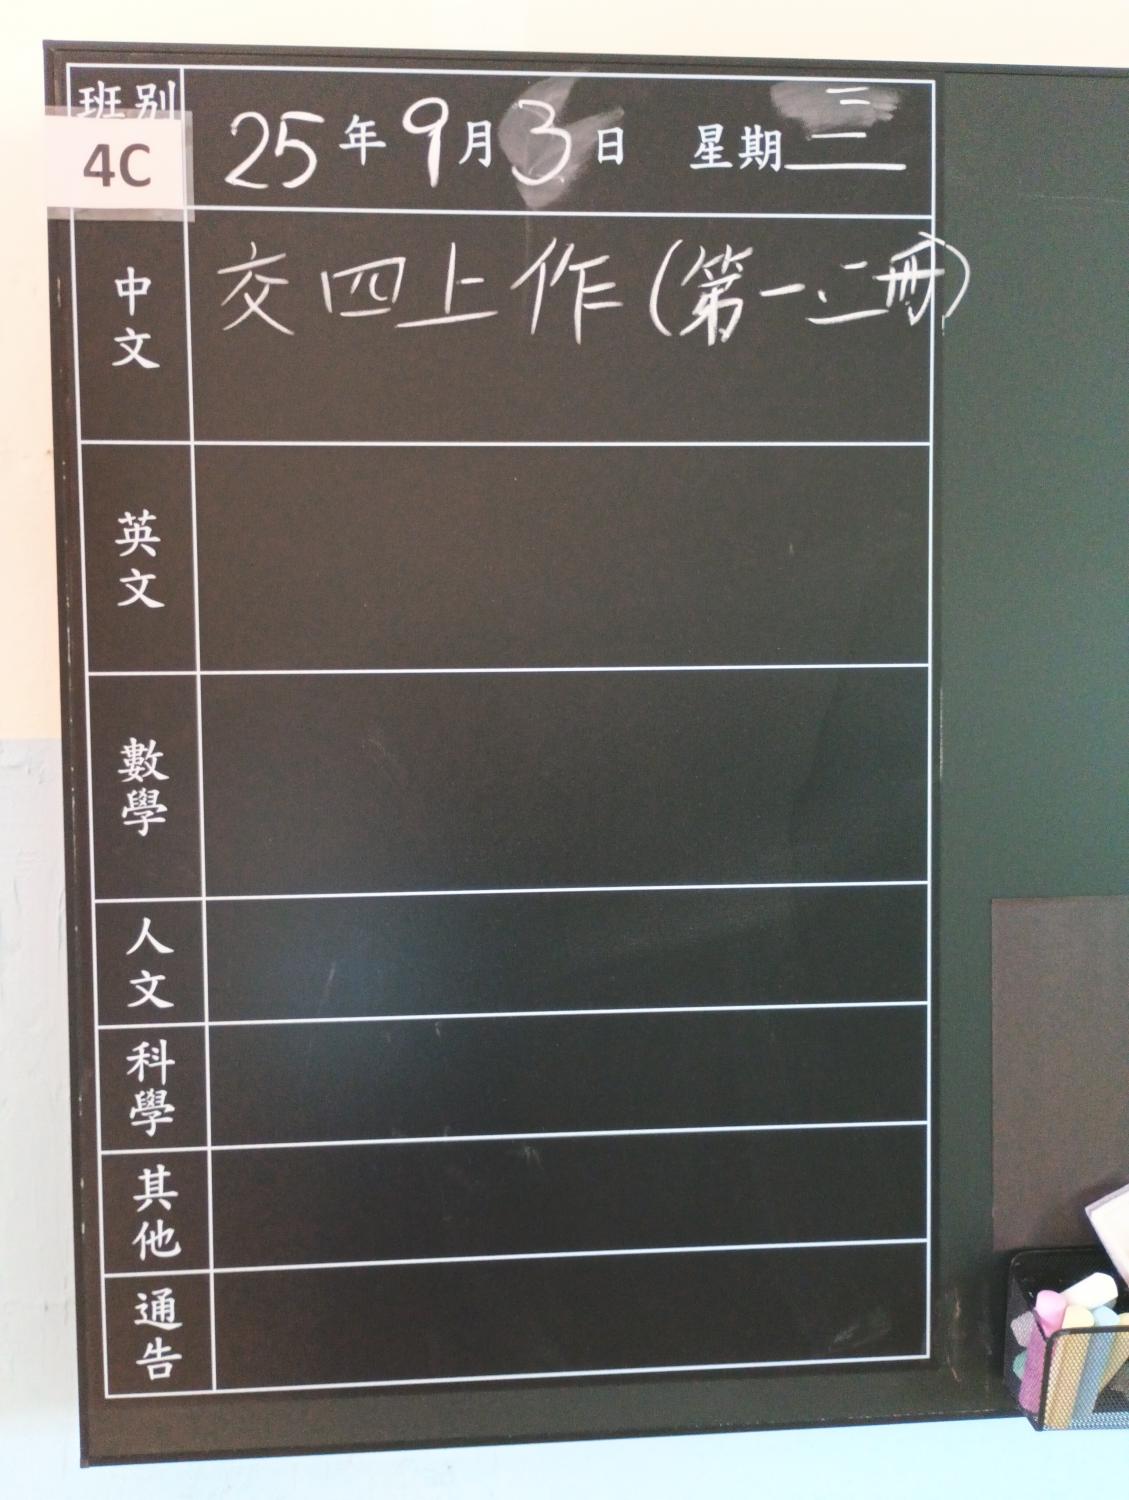 班別
4C
25年9月3日 星期三
中文
交四上作(第一、二冊)
英文
數學
人文
科學
其他
通告